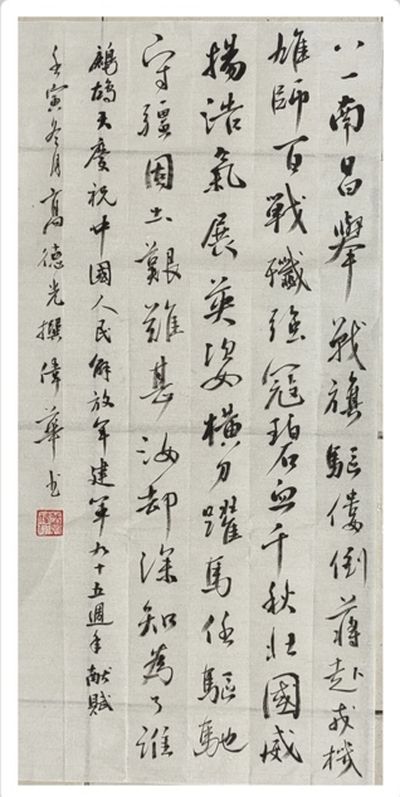 八一南昌舉戰旗驅倭倒蔣赴戎機
雄師百戰殲強寇碧血千秋壯國威
揚浩氣展英姿橫刀躍馬任驅馳
守疆固土艱難甚汝却深知為了誰
鷓鴣天慶祝中國人民解放軍建軍九十五週年献賦
壬寅冬月高德光撰偉華书